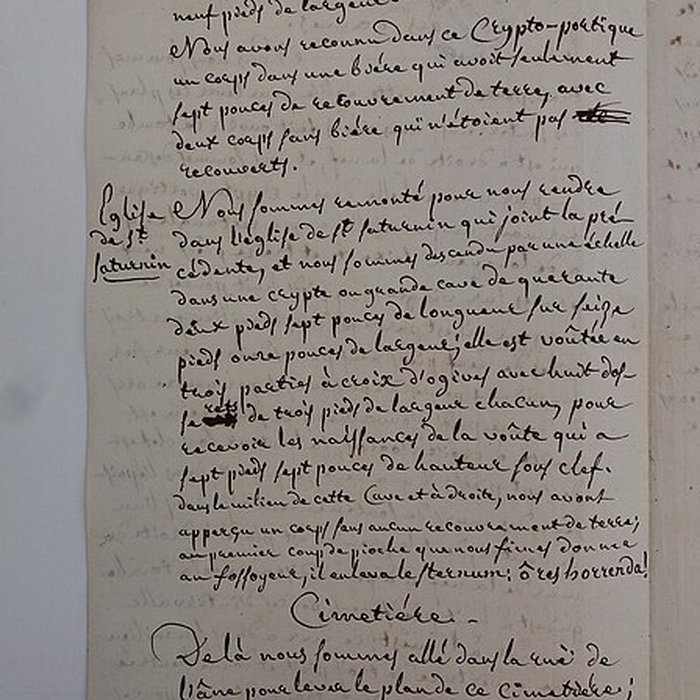 neuf pieds de largeur.
Nous avons reconnu dans ce Crypto-portique
un corps dans une biére qui avoit seulement
sept pouces de recouvrement de terre, avec
deux corps sans biére qui n'étoient pas
recouverts.
Eglise
de St
saturnin
Nous sommes remonté pour nous rendre
dans l'église de St saturnin qui joint la pré-
cédente, et nous sommes descendu par une échelle
dans une crypte ou grande cave de quarante
deux pieds sept pouces de longueur sur seize
pieds onze pouces de largeur; elle est voûtée en
trois parties à croix d'ogives avec huit dos-
serets de trois pieds de largeur chacun, pour
recevoir les naissances de la voûte qui a
sept pieds sept pouces de hauteur sous clef.
dans le milieu de cette Cave et à droite, nous avons
apperçu un corps sans aucun recouvrement de terre;
au premier coup de pioche que nous fimes donner
au fossoyeur, il enleva le sternum: ô res horrenda!
Cimetiére.
De là nous sommes allé dans la rue de
l'âne pour lever le plan de ce cimetiére;